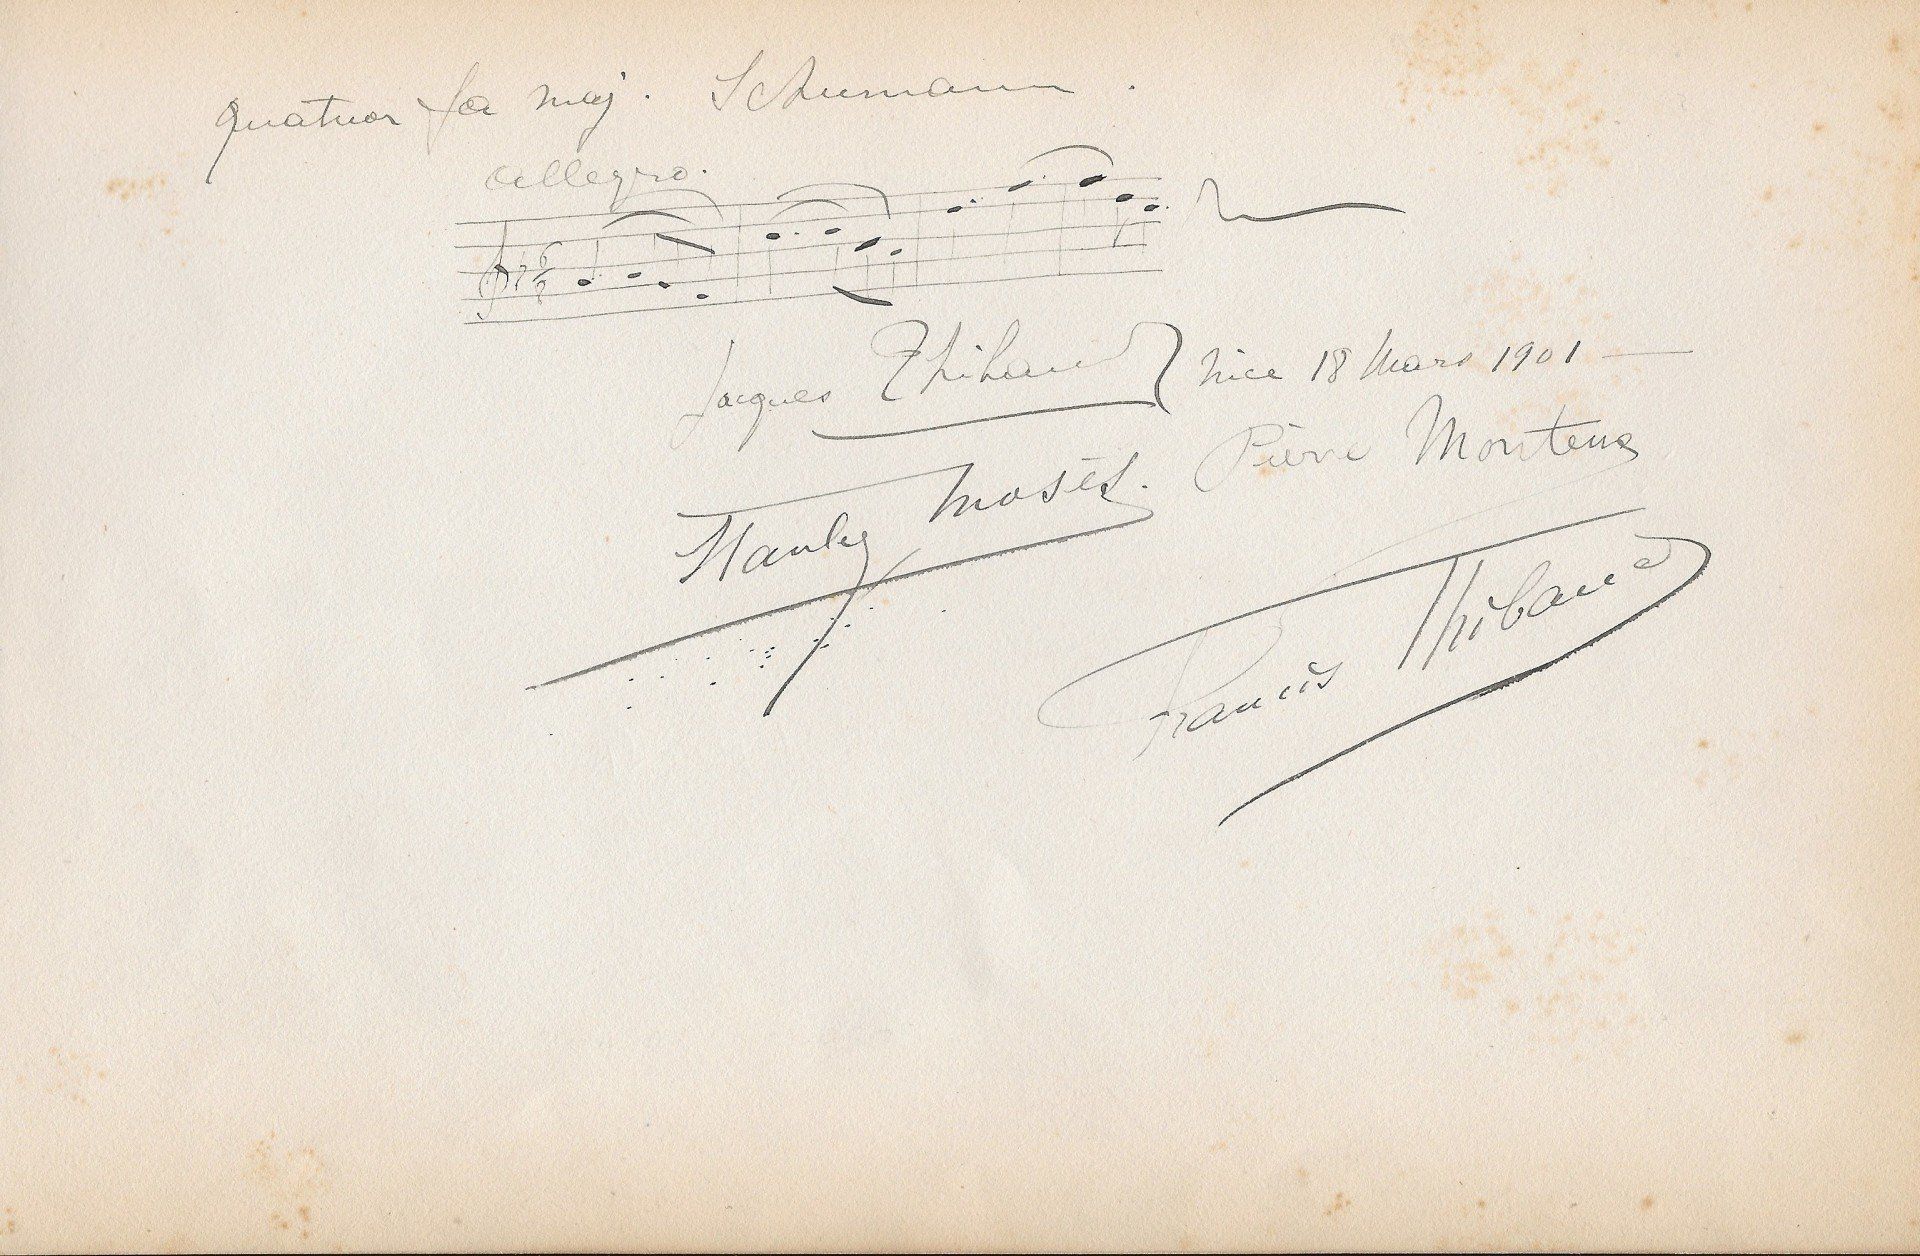 quatuor fa maj. Schumann.
allegro.
6
8
Jacques Thibaud Nice 18 Mars 1901 —
Pierre Monteux
Stanley Mosès.
Francis Thibaud